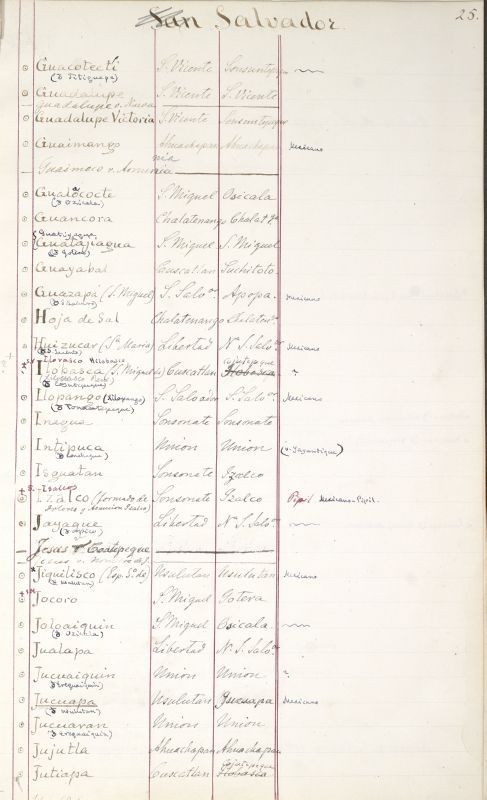 San Salvador.
25.
Guacotecti S. Vicente Sensuntepeque
(Titiguapa)
Guadalupe S. Vicente S. Vicente
Guadalupe v. Nueva
Guadalupe Victoria S. Vicente Sensuntepeque
Guaimango Ahuachapan Ahuachapan Mexicano
Guaimoco v. Armenia
Gualococte S. Miguel Osicala
(Ozicala)
Guancora Chalatenango Chalat.go
Guatijiagua
Gualajiagua S. Miguel S. Miguel
(Gotera)
Guayabal Cuscatlan Suchitoto
Guazapa (S. Miguel) S. Salv.or Apopa. Mexicano
Hoja de Sal Chalatenango Chalat.go
Huizucar (S.ta Maria) Libertad N.a S. Salv.or Mexicano
Ilovasco Hilobasco
Ilobasca (S. Miguel de) Cuscatlan Cojutepeque Ilobasca "
(Cojutepeque)
Ilopango (Xilopango) S. Salvador S. Salv.or Mexicano
(Tonacatepeque)
Inagua Sonsonate Sonsonate
Intipuca Union Union (v. Yayantique)
(Conchagua)
Isguatan Sonsonete Izalco
Izalcos
Izalco (formado de Sonsonate Izalco Pipil Mexicano-Pipil.
Dolores y Asuncion Izalco)
Jayaque Libertad N.a S. Salv.or
(Opico)
Jesus Coatepeque
Jiquilisco (Esp. S.o de) Usulutan Usulutan Mexicano
(Usulutan)
Jocoro S. Miguel Gotera
Joloaiquin S. Miguel Osicala
Jualapa Libertad N.a S. Salv.or
Jucuaiquin Union Union "
(Ereguaiquin)
Jucuapa Usulutan Jucuapa Mexicano
(Usulutan)
Jucuaran Union Union
(Ereguaiquin)
Jujutla Ahuachapan Ahuachapan
Jutiapa Cuscatlan Cojutepeque Ilobasca